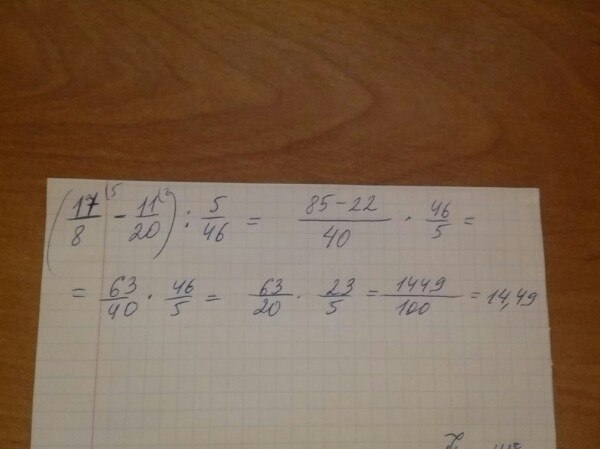 (17/8 ⁽⁵ - 11/20 ⁽²) : 5/46 = 85-22/40 · 46/5 =
= 63/40 · 46/5 = 63/20 · 23/5 = 1449/100 = 14,49